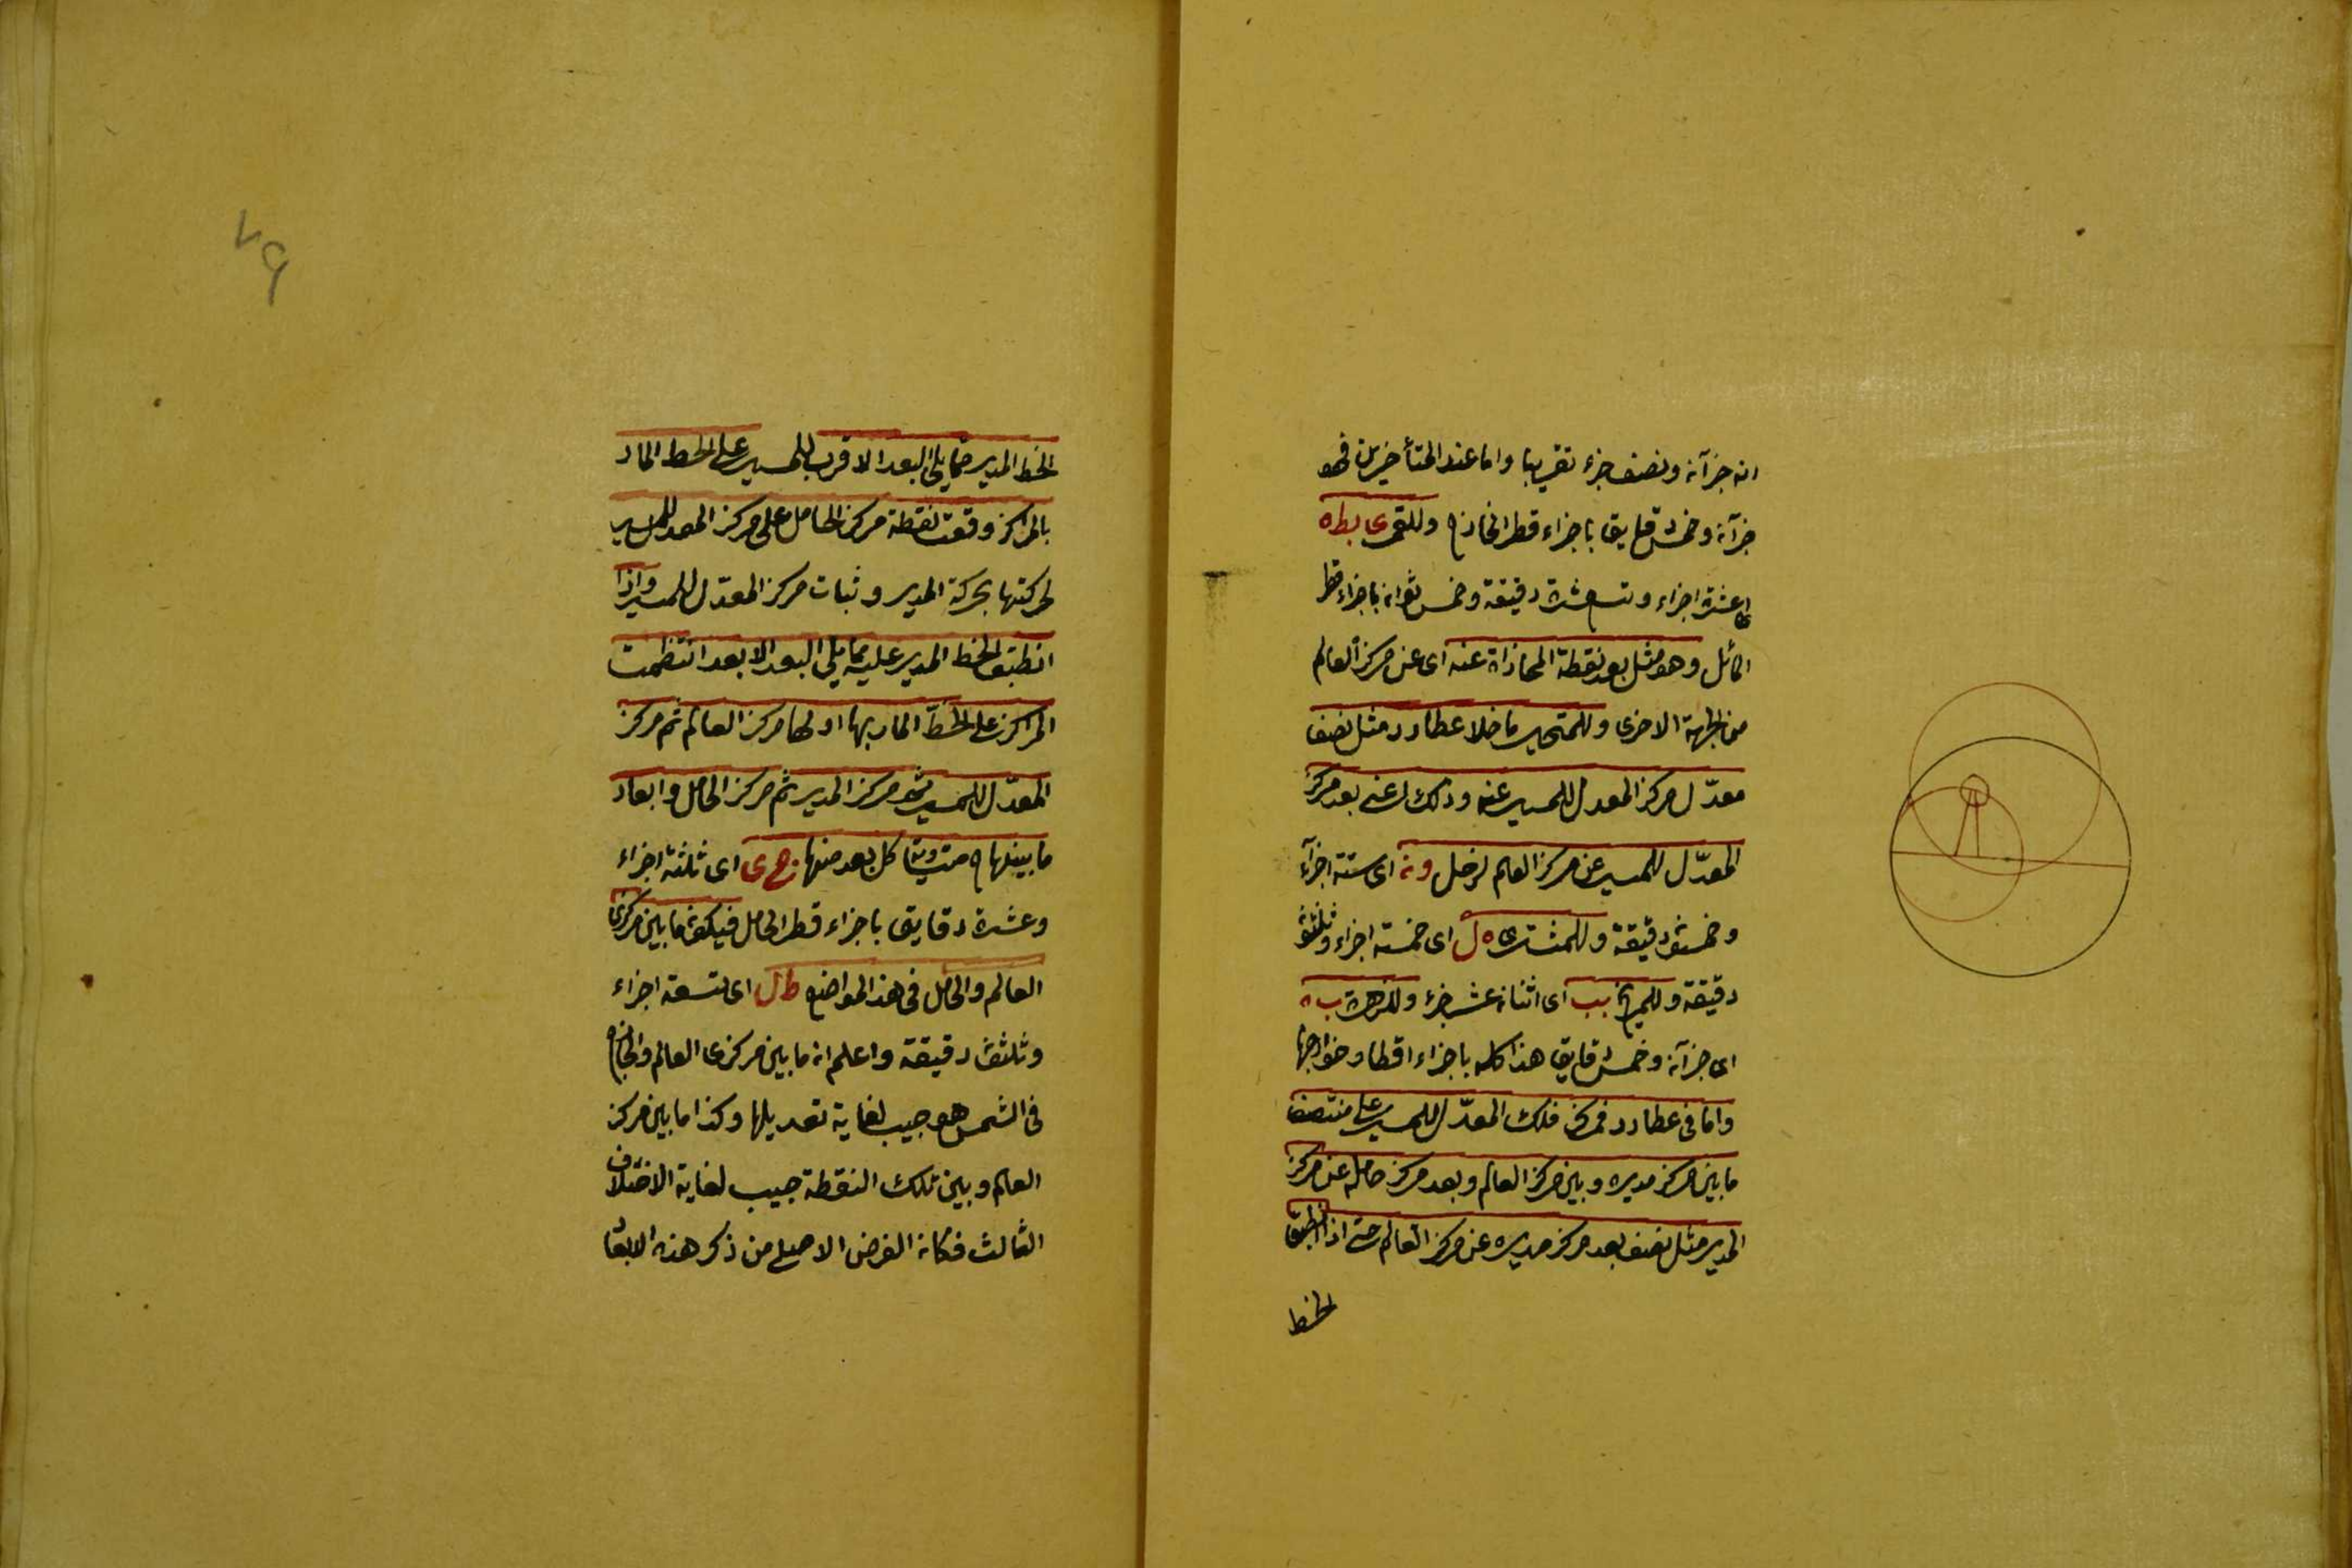 انه جزآن ونصف جزء تقريبا واما عند المتأخرين فهو
جزآن وخمس دقايق باجزاء قطر الخارج وللقمر ى يط ه
اى عشرة اجزاء وتسع عشرة دقيقة وخمس ثوان باجزاء قطر
المائل وهو مثل بعد نقطة المحاذاة عنه اى عن مركز العالم
من الجهة الاخرى وللمتحيرة ما خلا عطارد مثل نصف
معدّل مركز المعدل للمسير عنه وذلك اعنى بعد مركز
المعدّل للمسير عن مركز العالم لزحل و ن اى ستة اجزآء
وخمسون دقيقة وللمشترى ه ل اى خمسة اجزاء وثلثون
دقيقة وللمريخ يب اى اثنا عشر جزء وللزهرة ب ه
اى جزآن وخمس دقايق هذا كله باجزاء اقطار خوارجها
واما فى عطارد فمركز فلك المعدّل للمسير على منتصف
ما بين مركز مديره وبين مركز العالم وبعد مركز حامله عن مركز
المدير مثل نصف بعد مركز مديره عن مركز العالم حتى اذا انطبق
الخط
٧٩
الخط المدير مما يلى البعد الاقرب للمسير على الخط المار
بالمراكز وقعت نقطة مركز الحامل على مركز المعدل للمسير
لحركتها بحركة المدير وثبات مركز المعدّل للمسير واذا
انطبق الخط المدير عليه مما يلى البعد الابعد انتظمت
المراكز على الخطّ المار بها اولها مركز العالم ثم مركز
المعدّل للمسير ثم مركز المدير ثم مركز الحامل وابعاد
ما بينها متساوية كل بعد منها ج ى اى ثلثة اجزاء
وعشرة دقايق باجزاء قطر الحامل فيكون ما بين مركزى
العالم والحامل فى هذا المواضع ط ل اى تسعة اجزاء
وثلثون دقيقة واعلم ان ما بين مركزى العالم والخارج
فى الشمس هو جيب لغاية تعديلها وكذا ما بين مركز
العالم وبين تلك النقطة جيب لغاية الاختلاف
الثالث فكان الغرض الاصلى من ذكر هذه الابعاد